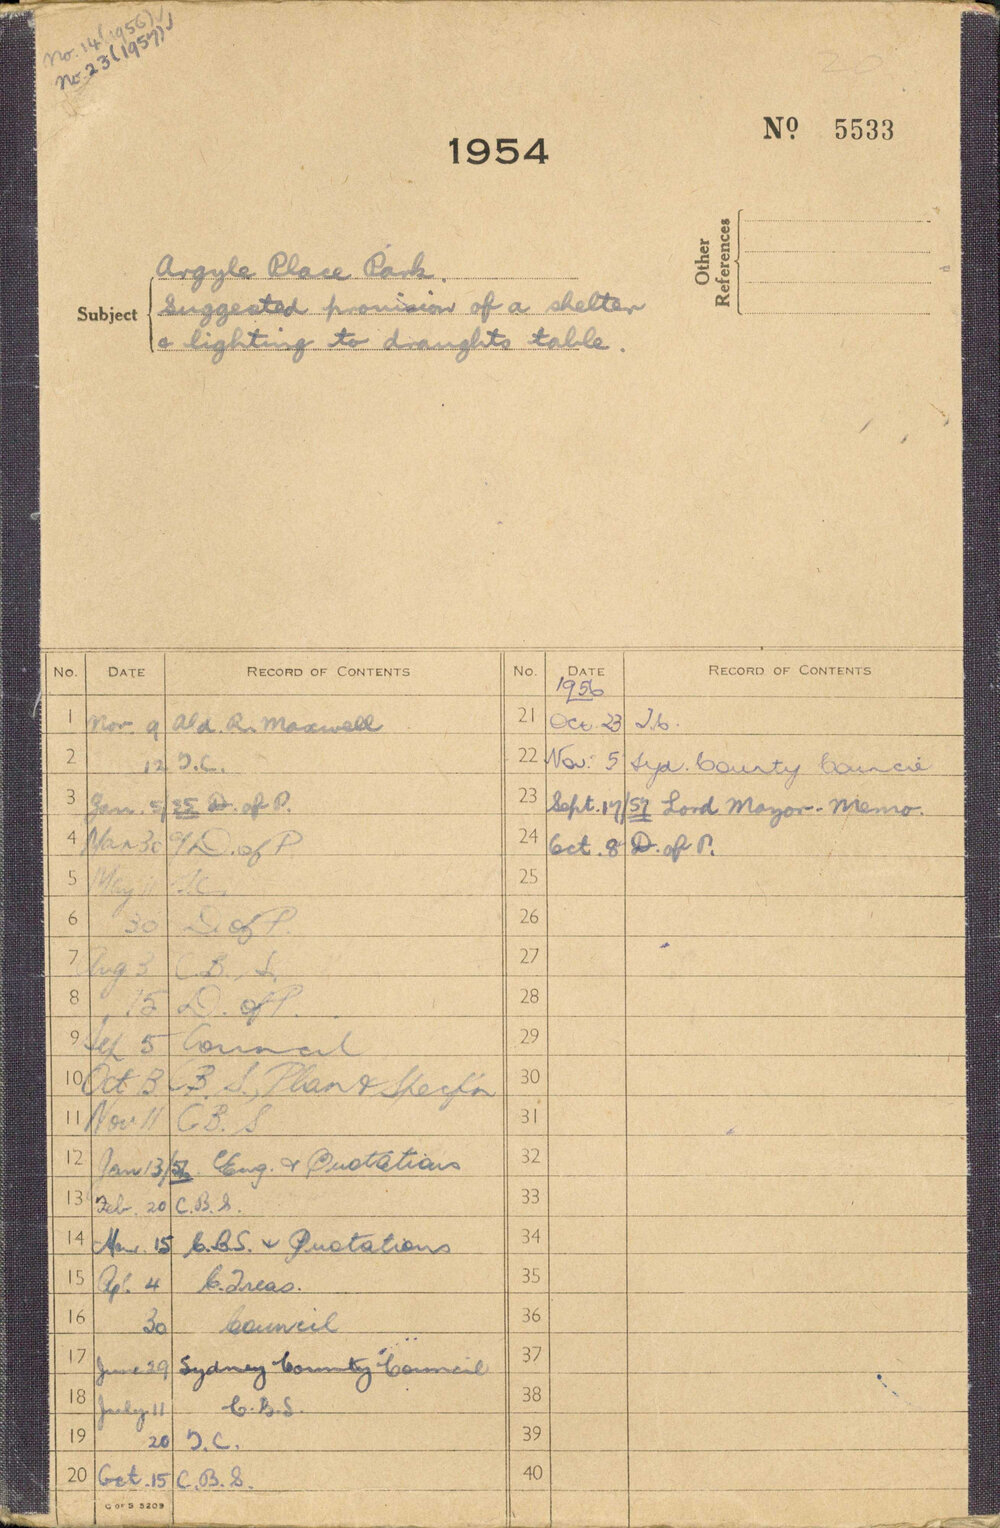 No. 14 (1956) √
No. 23 (1957) √
20
1954
No 5533
Other References
Subject
Argyle Place Park.
Suggested provision of a shelter
& lighting to draughts table.
No. DATE RECORD OF CONTENTS
1 Nov. 9 Ald. R. Maxwell
2 12 T.C.
3 Jan. 5/55 D. of P.
4 Mar 30 D. of P.
5 May 11
6 30 D. of P.
7 Aug 3 C.B.S.
8 15 D. of P.
9 Sep 5 Council
10 Oct 13 C.B.S., Plan & Specf'n
11 Nov 11 C.B.S
12 Jan 13/56 Eng. & Quotations
13 Feb. 20 C.B.S.
14 Mar. 15 C.B.S. & Quotations
15 Apl. 4 C. Treas.
16 30 Council
17 June 29 Sydney County Council
18 July 11 C.B.S.
19 20 T.C.
20 Oct. 15 C.B.S.
C OF S 5209
No. DATE RECORD OF CONTENTS
1956
21 Oct. 23 T.C.
22 Nov. 5 Syd. County Council
23 Sept. 17/57 Lord Mayor - Memo.
24 Oct. 8 D. of P.
25
26
27
28
29
30
31
32
33
34
35
36
37
38
39
40